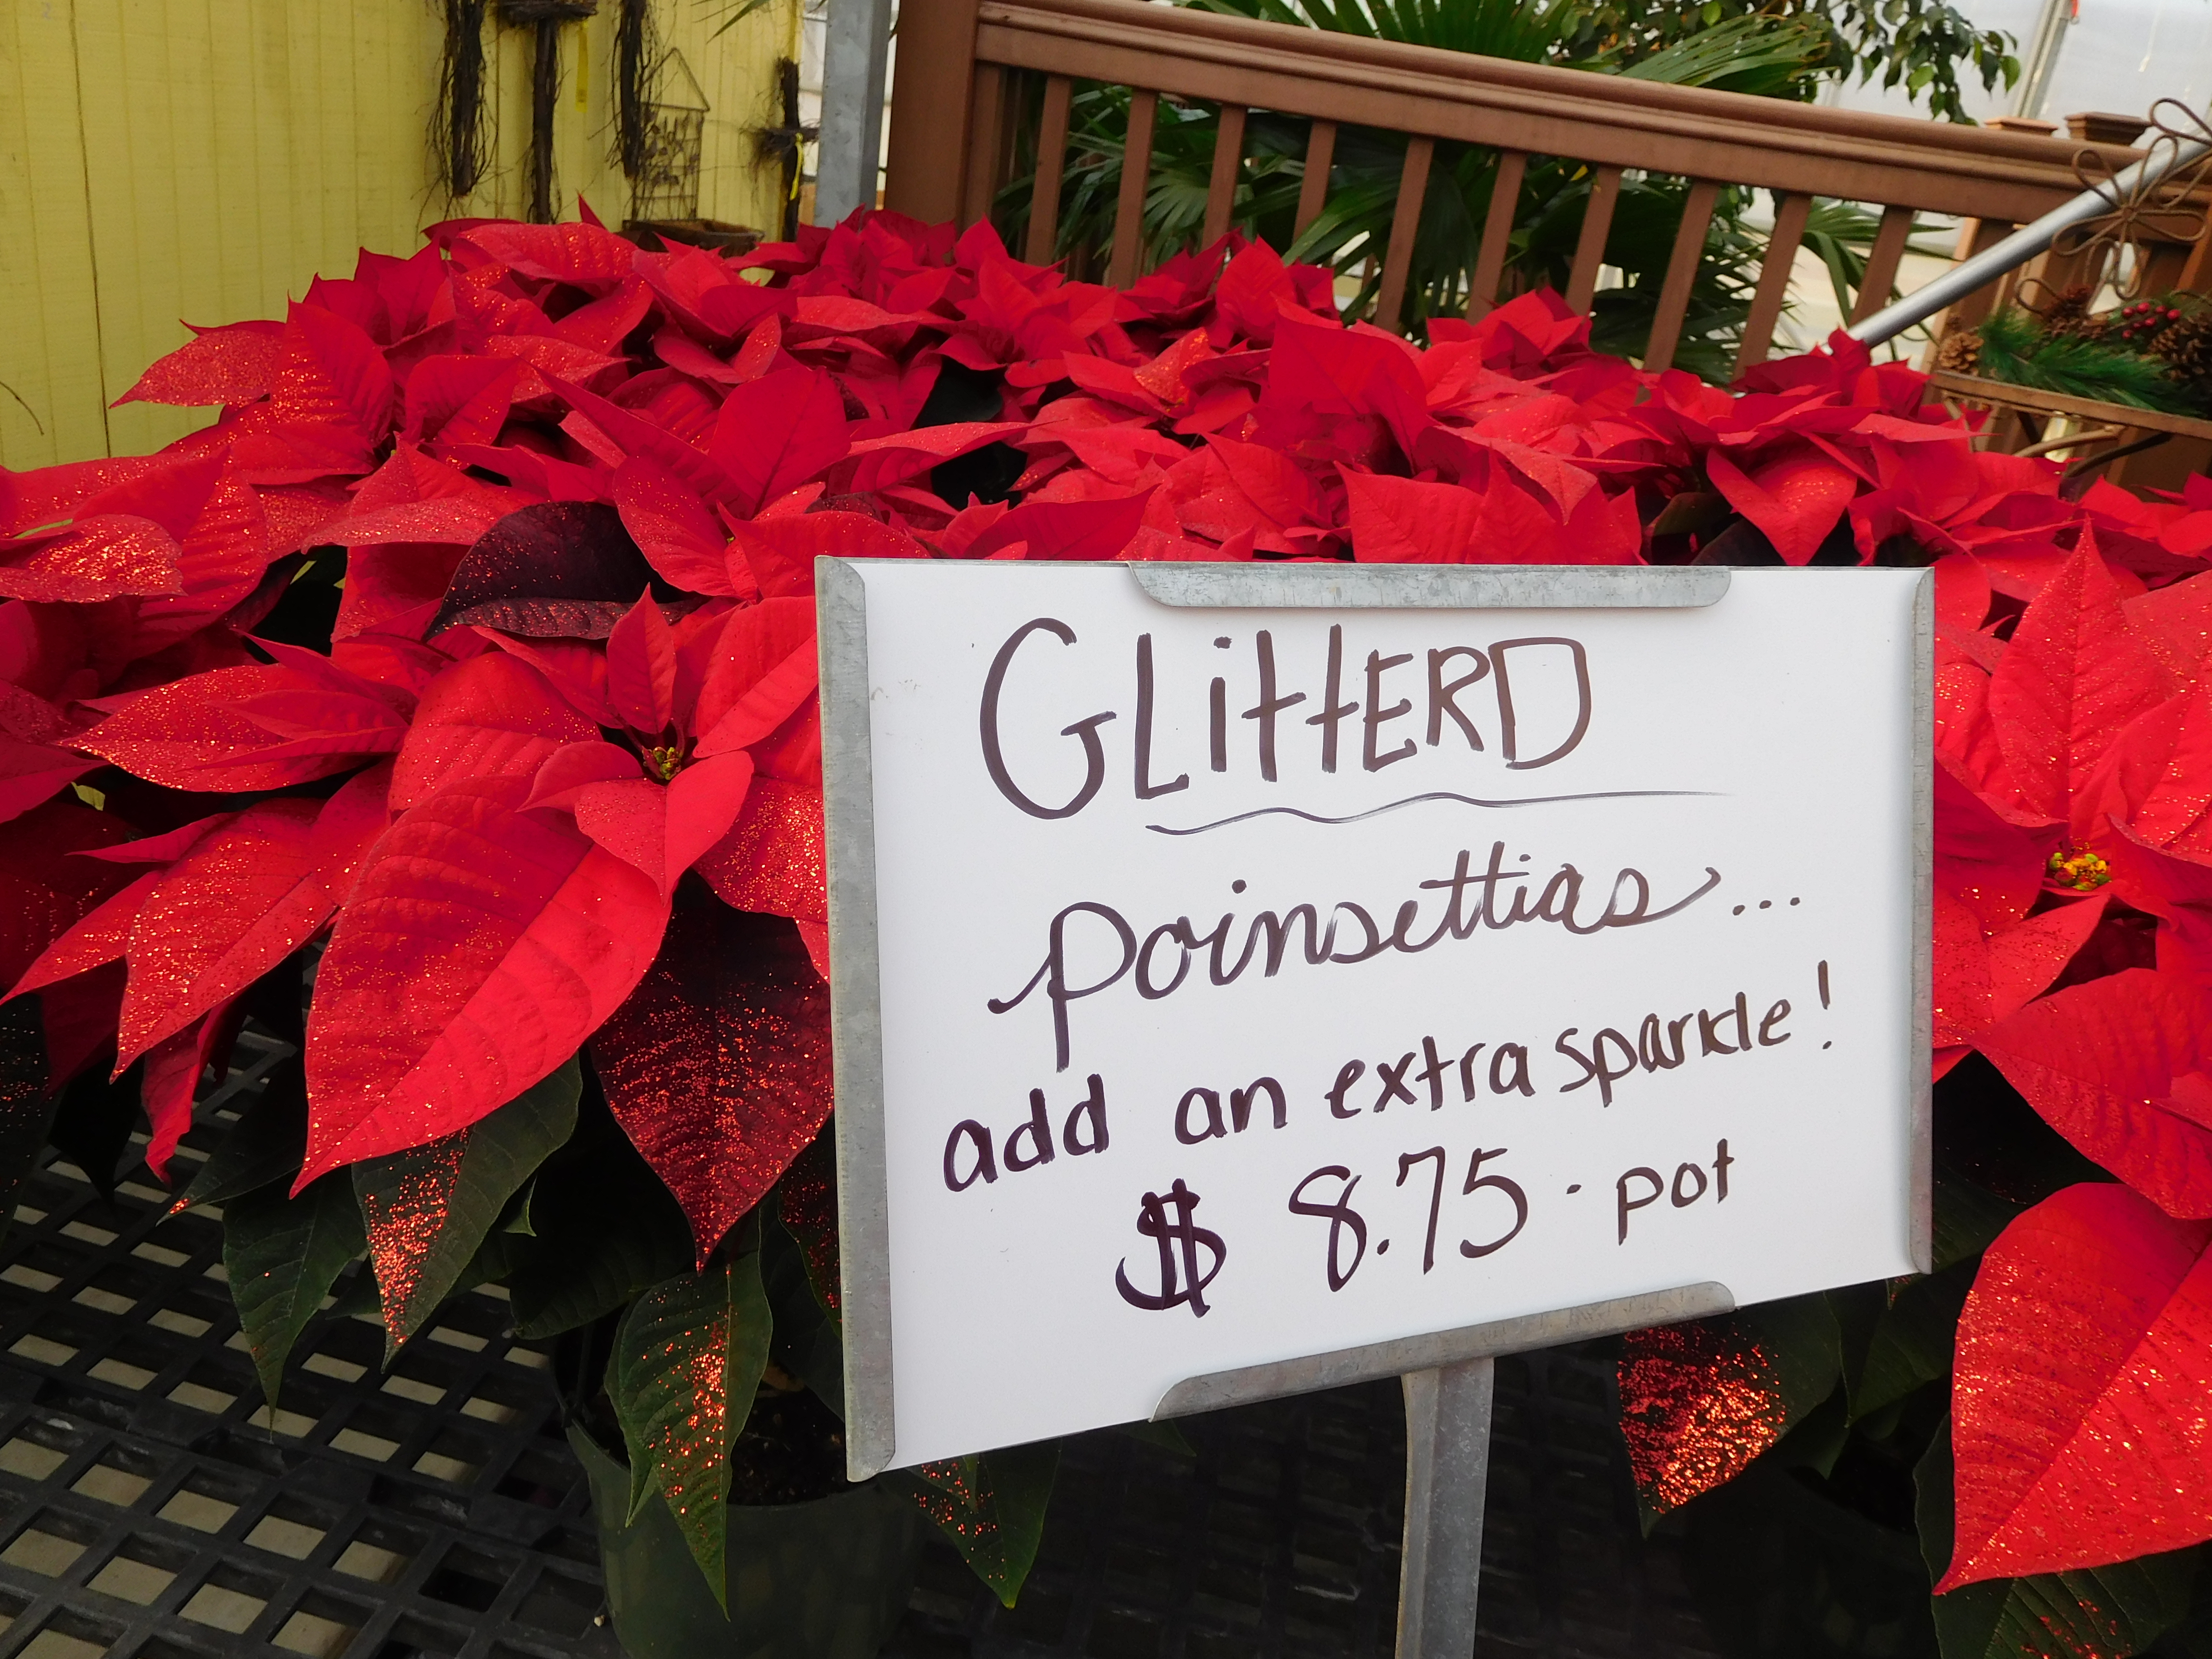 GLittERD
poinsettias...
add an extra sparkle!
$ 8.75 · pot